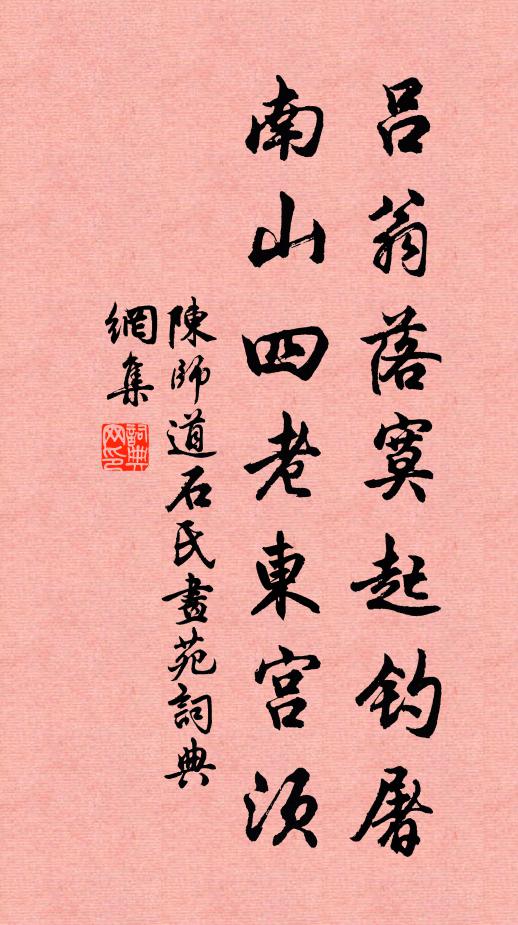 呂翁落寞起钓屠
南山四老東宫須
陳師道石氏畫苑詞典
網集
詞典
网印